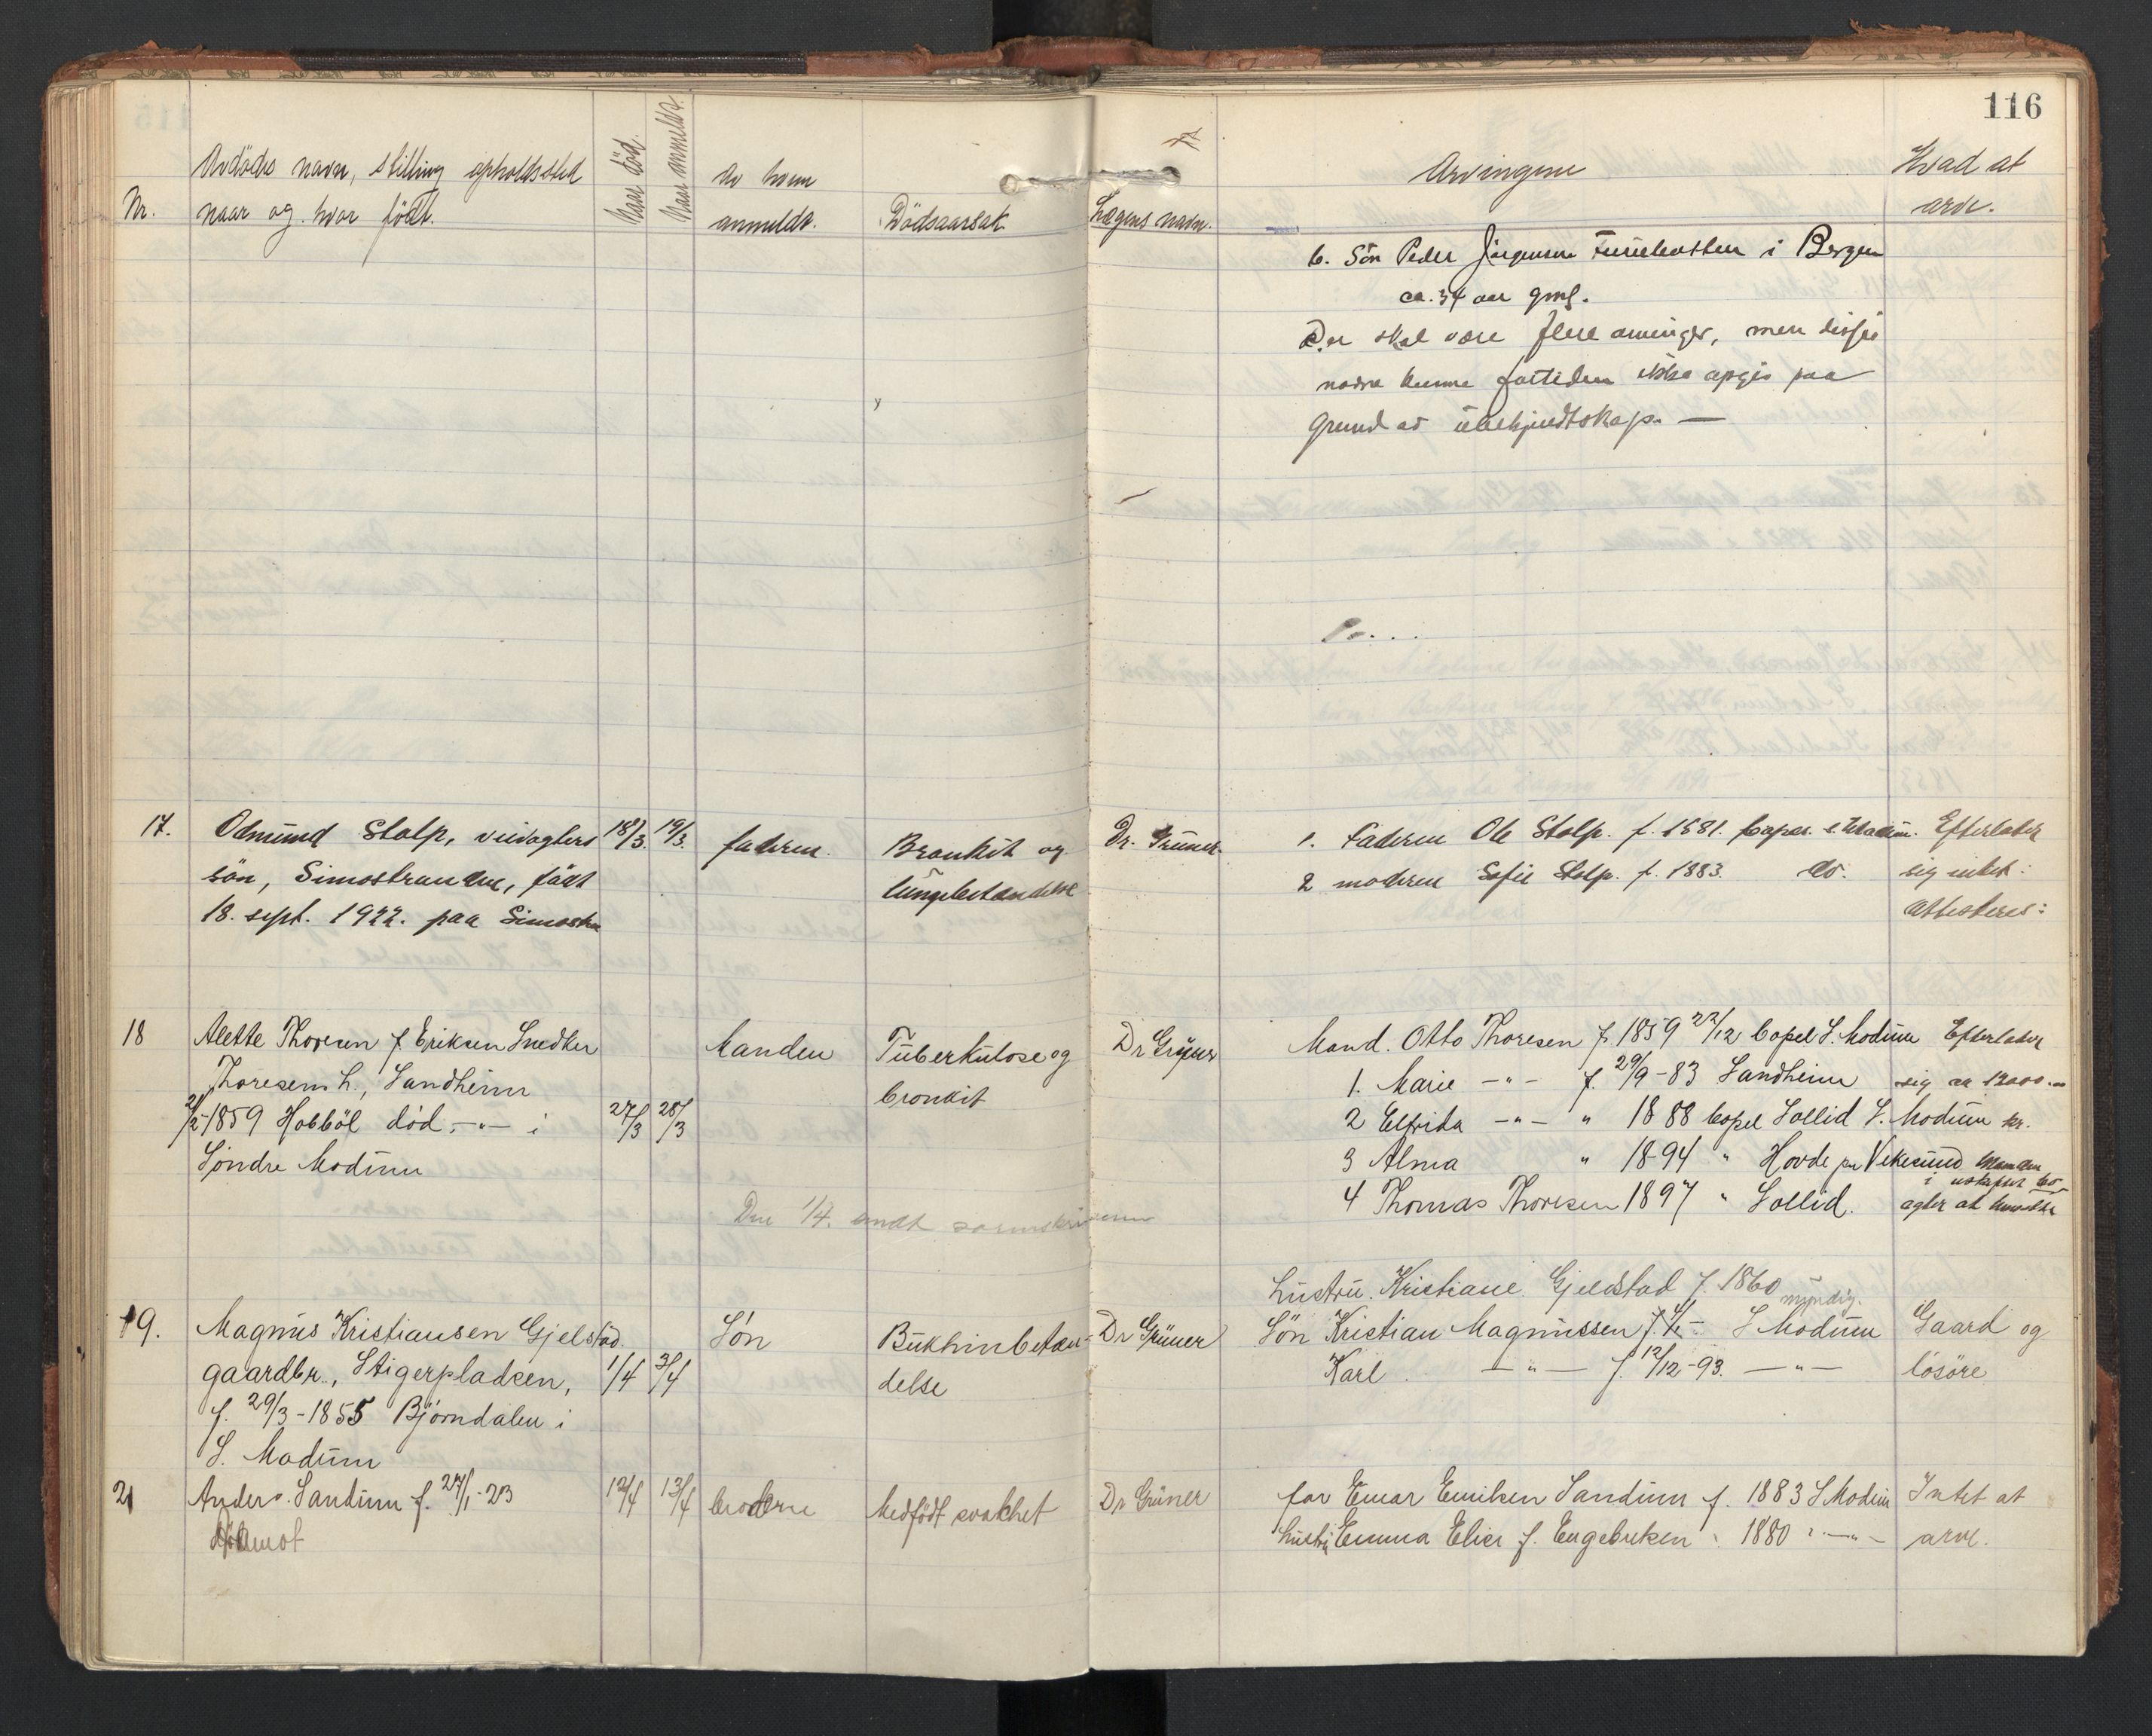 116
Nr.
Avdødes navn, stilling opholdssted
naar og hvor født.
Naar død.
Naar anmeldt.
Av hvem
anmeldt.
Dødsaarsak
Lægens navn.
Arvingene
Hvad at
arve.
6. Søn Peder Jørgensen i Bergen
ca. 34 aar gml.
Der skal være flere arvinger, men disses
navne kunne fortiden ikke opgis paa
grund av ubekjendtskap. —
17. Odmund Stolp, veivogters 18/3. 19/3. faderen. Bronkit og Dr. Grüner. 1. Faderen Ole Stolp. f. 1881. Efterlater
søn, Simostranden, født lungebetændelse 2 moderen Sofie Stolp. f. 1883. do. sig intet:
18. sept. 1922. paa Simostr attesteres:
18 Alette Thoresen f. Eriksen Snedker Manden Tuberkulose og Dr Grüner Mand. Otto Thoresen f. 1859 22/12 bopel S. Modum Efterlater
Thoresens h., Sandheim bronkit 1. Marie —"— f. 29/9-83 Sandheim sig ca 12000.—
21/2-1859 Hobbøl død —"— i 27/3 28/3 2 Elfrida —"— " 1888 bopel Sollid S. Modum kr.
Søndre Modum 3 Alma " 1894 " Hovde pr Vikesund Manden
i uskiftet bo
4 Thomas Thoresen 1897 " Sollid. agter at
Den 1/4. sendt sorenskriveren
Hustru. Kristiane Gjelstad f. 1860
myndig.
19. Magnus Kristiansen Gjelstad. Søn Bukhinbetæn- Dr Grüner Søn Kristian Magnussen f. S Modum Gaard og
gaardbr., Stigerpladsen, 1/4 3/4 delse Karl —"— f. 12/12-93. —"— løsøre
f. 29/3-1855 Bjørndalen i
S. Modum
21 Anders Sandum f. 27/1-23 12/4 13/4 broderen Medfødt svakhet Dr Grüner far Einar Emilsen Sandum f. 1883 S Modum Intet at
Åmot hustru Emma Elise f. Engebretsen " 1880 " —"— arve.